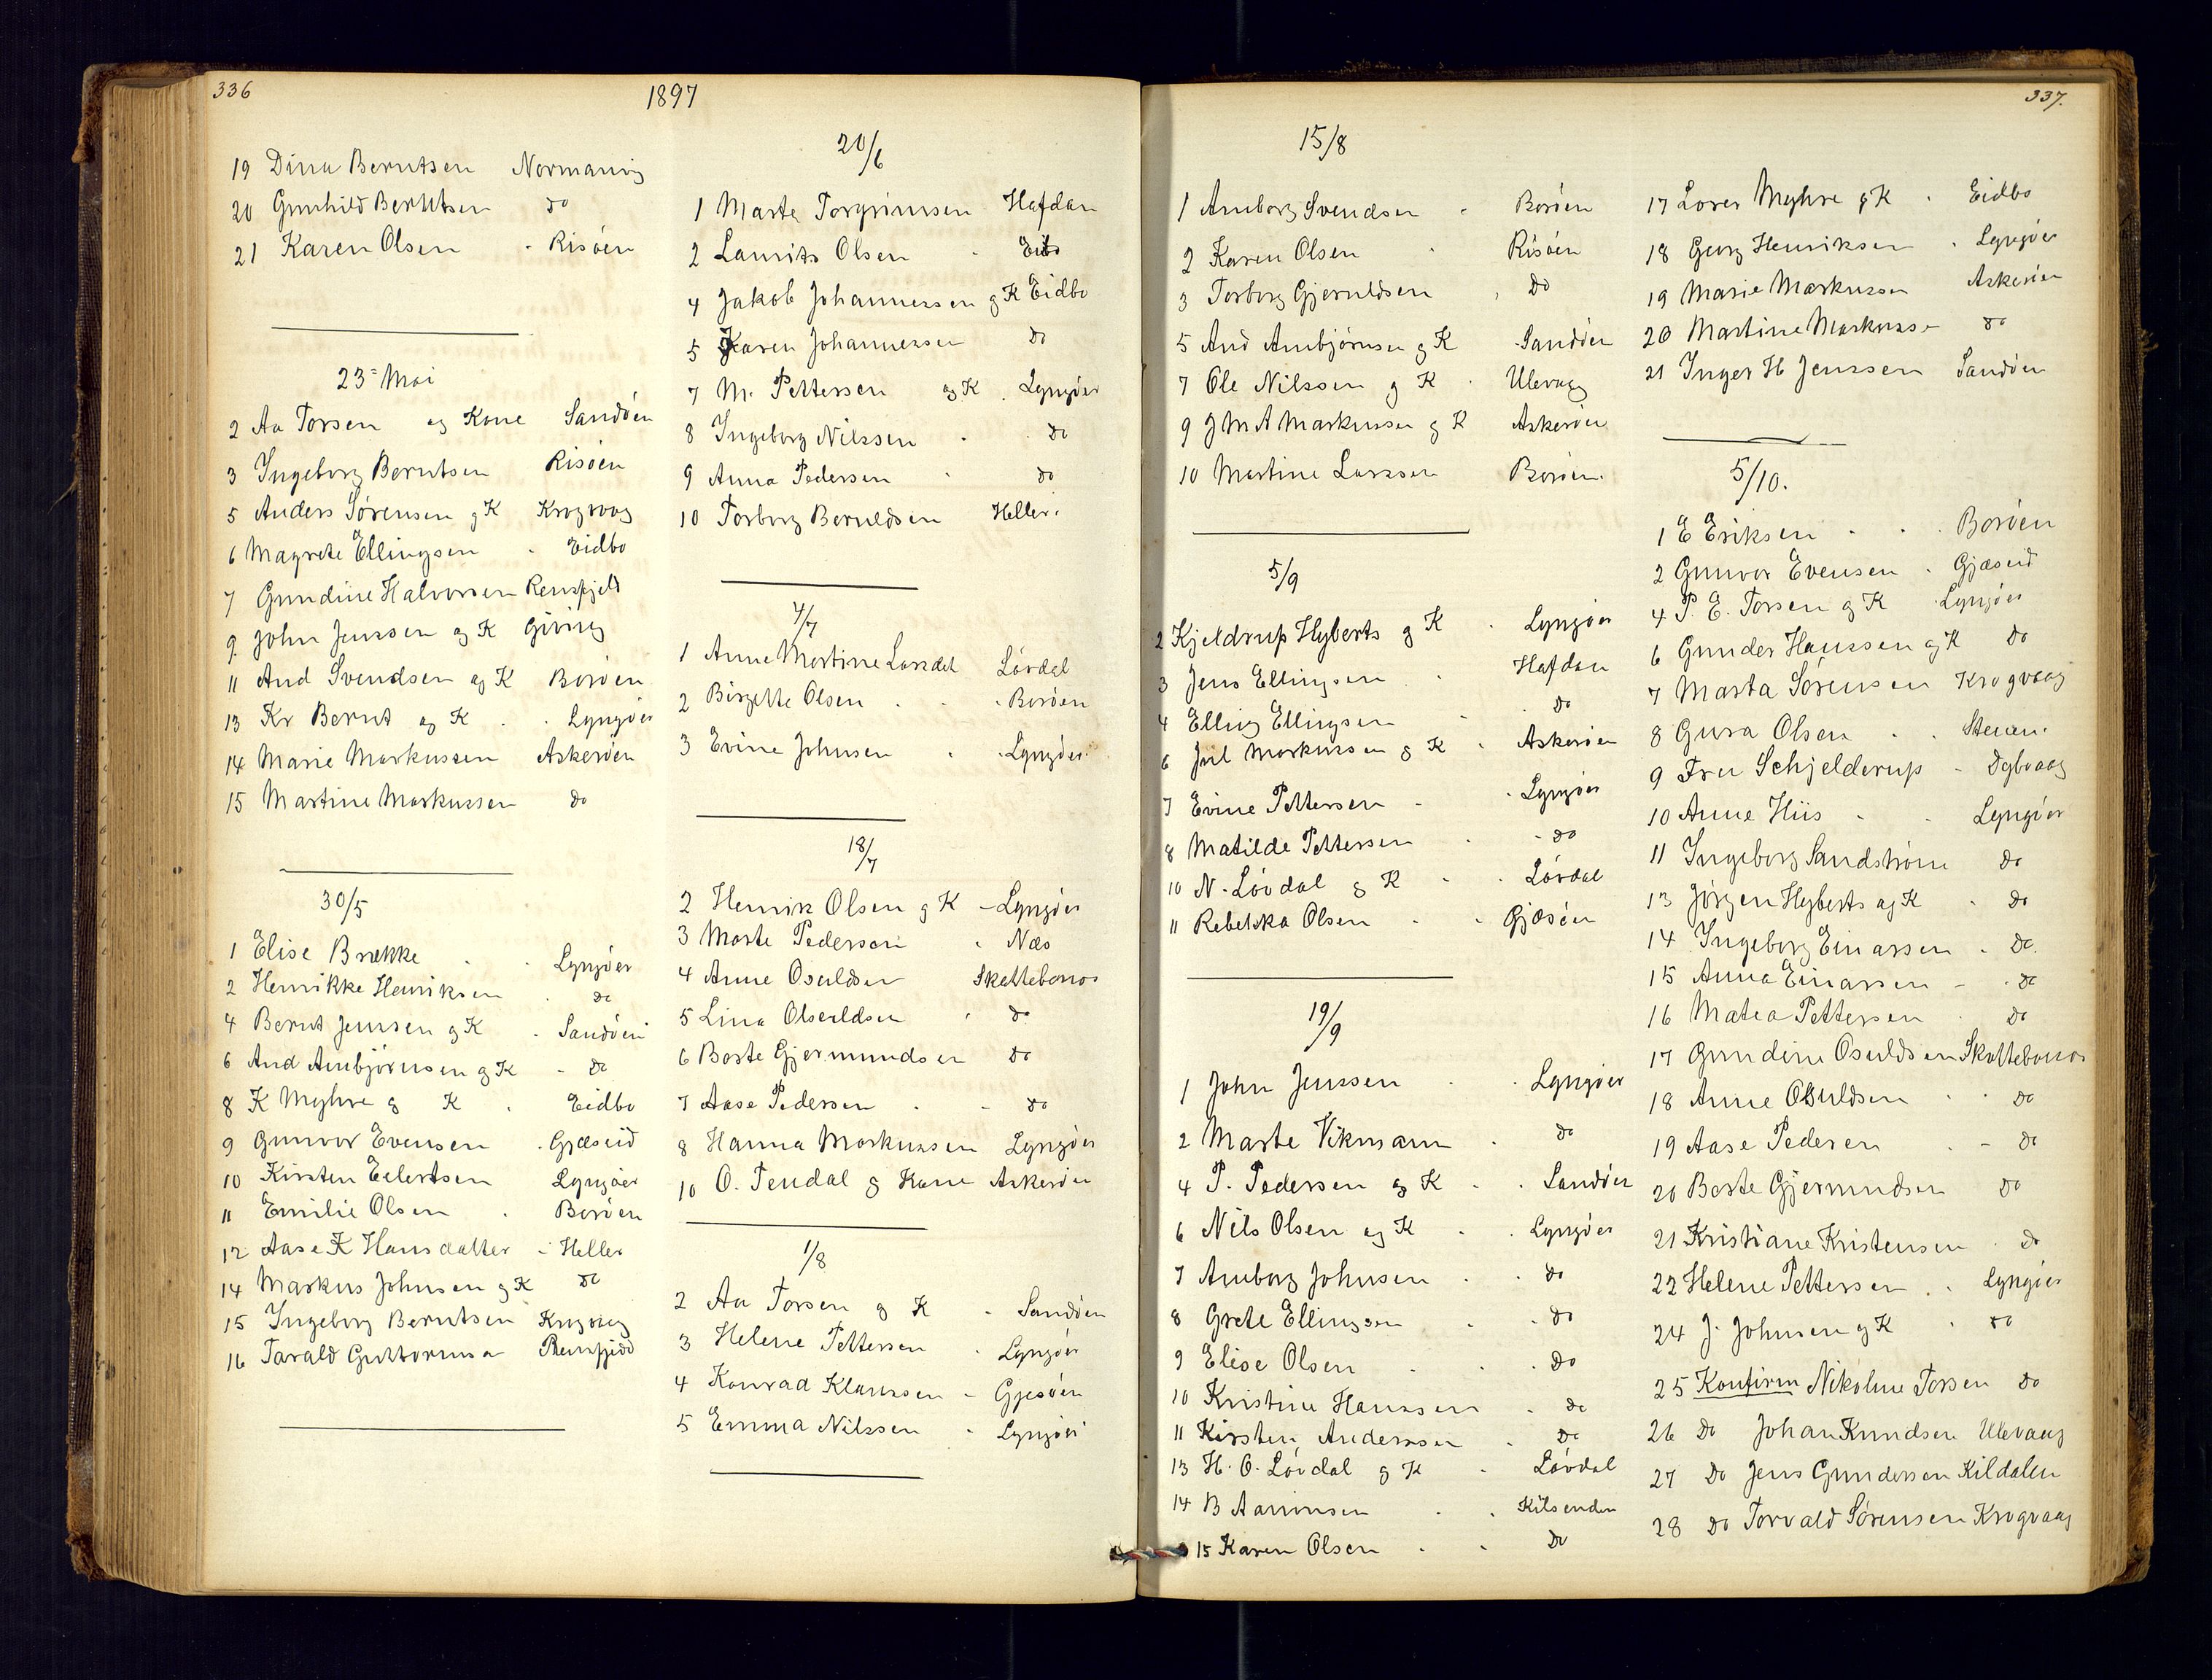 336
1897
19 Dina Berntsen Normanvig
20 Gunhild Berntsen do
21 Karen Olsen Risøen
23= Mai
2 Aa Torsen og Kone Sandøen
3 Ingeborg Berntsen Risøen
5 Anders Sørensen g K Krogvaag
6 Magrete Ellingsen Eidbo
7 Gundine Halvorsen Rensfjeld
9 John Jenssen og K Giving
11 And Svendsen og K Borøen
13 Kr Bernt og K Lyngøer
14 Marie Markussen Askerøen
15 Martine Markussen do
30/5
1 Elise Brække Lyngøer
2 Henrikke Henriksen do
4 Bernt Jenssen g K Sandøen
6 And Arnbjørnsen og K do
8 K Myhre g K Eidbo
9 Gunvor Evensen Gjæseid
10 Kirsten Eilertsen Lyngøer
11 Emilie Olsen Borøen
12 Aase K Hansdatter Heller
14 Markus Johnsen og K do
15 Ingeborg Berntsen Krogvaag
16 Tarald Guttormsen Rensfjeld
20/6
1 Marte Torgrimsen Hafdan
2 Laurits Olsen Eidbo
4 Jakob Johannessen g K Eidbo
5 Karen Johannessen do
7 M. Pettersen og K Lyngøer
8 Ingeborg Nilssen do
9 Anna Pedersen do
10 Torborg Beruldsen Heller
4/7
1 Anne Martine Løvdal Løvdal
2 Birgette Olsen Borøen
3 Evine Johnsen Lyngøer
18/7
2 Henrik Olsen g K Lyngøer
3 Marte Pedersen Næs
4 Anne Osuldsen Skottebonos
5 Lina Olseldsen do
6 Borte Gjermundsen do
7 Aase Pedersen do
8 Hanna Markussen Lyngøer
10 O. Tendal g Kone Askerøen
1/8
2 Aa Torsen g K Sandøen
3 Helene Pettersen Lyngøer
4 Konrad Klaussen Gjesøen
5 Emma Nilssen Lyngøer
337.
15/8
1 Amborg Svendsen Borøen
2 Karen Olsen Risøen
3 Torborg Gjeruldsen do
5 And Arnbjørnsen g K Sandøen
7 Ole Nilssen g K Ulevaag
9 J M A Markussen g K Askerøen
10 Martine Larssen Borøen
5/9
2 Kjeldrup Hyberts g K Lyngøer
3 Jens Ellingsen Hafdan
4 Elling Ellingsen do
6 Juel Markussen g K Askerøen
7 Evine Pettersen Lyngøer
8 Matilde Pettersen do
10 N. Løvdal g K Løvdal
11 Rebekka Olsen Gjæsøen
19/9
1 John Jenssen Lyngøer
2 Marte Vikmann do
4 P. Pedersen og K Sandøen
6 Nils Olsen og K Lyngøer
7 Amborg Johnsen do
8 Grete Ellingsen do
9 Elise Olsen do
10 Kristine Hanssen do
11 Kirsten Anderssen do
13 H. O. Løvdal g K Løvdal
14 B Aanonsen Kilsenden
15 Karen Olsen do
17 Lorer Myhre g K Eidbo
18 Georg Henriksen Lyngøer
19 Marie Markussen Askerøen
20 Martine Markusse do
21 Inger H Jenssen Sandøen
5/10.
1 E Eriksen Borøen
2 Gunvor Evensen Gjæseid
4 P. E. Torsen g K Lyngøer
6 Gunder Hanssen og K do
7 Marta Sørensen Krogvaag
8 Gura Olsen Stenan
9 Fru Schjelderup Dybvaag
10 Anne Hiis Lyngøer
11 Ingeborg Sandstrøm do
13 Jørgen Hyberts og K do
14 Ingeborg Einarsen do
15 Anna Einarsen do
16 Matea Pettersen do
17 Gundine Osuldsen Skottebonos
18 Anne Osuldsen do
19 Aase Pedersen do
20 Borte Gjermundsen do
21 Kristiane Kristensen do
22 Helene Pettersen Lyngøer
24 J. Johnsen g K do
25 Konfirm Nikoline Torsen do
26 do Johan Knudsen Ulevaag
27 do Jens Gundersen Kildalen
28 do Torvald Sørensen Krogvaag